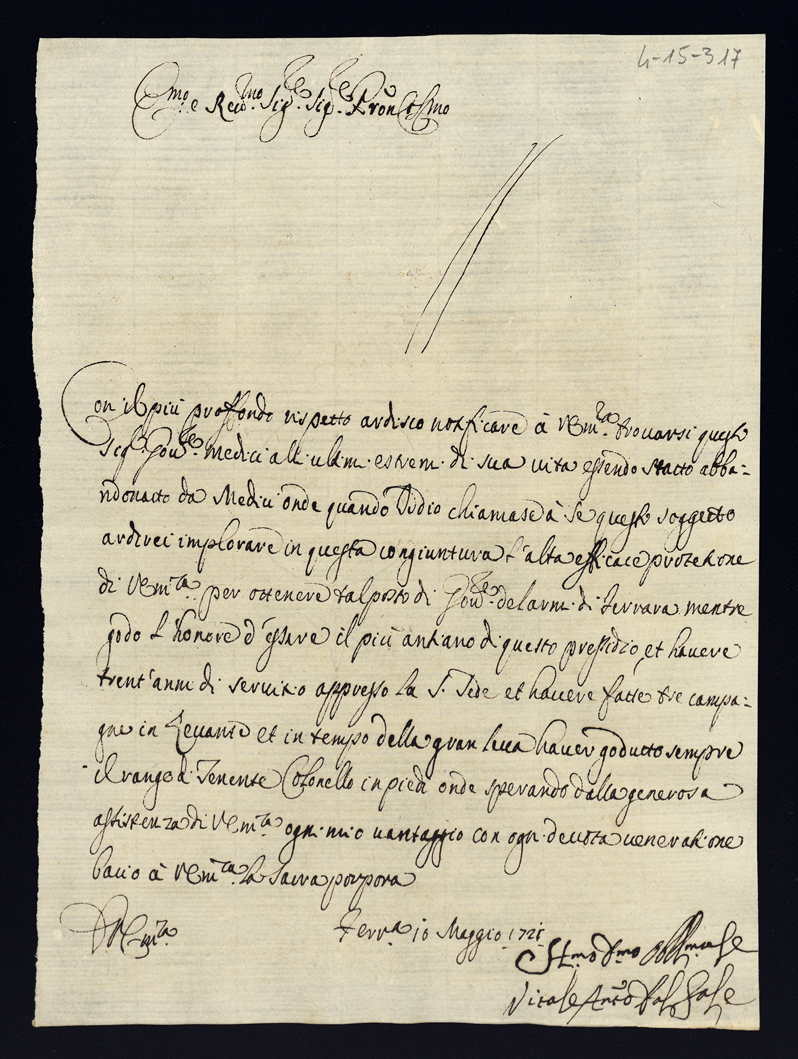 4-15-317
Em.mo e Reu.mo Sig.re Sig.re Pron Col.mo
Con il più proffondo rispetto ardisco notificare à VEm.za trouarsi questo
Sig.r Gou.re Medici all ultimi estremi di sua uita essendo statto abba-
ndonatto da Medici onde quando Iddio chiamase à Se questo soggetto
ardirei implorare in questa congiuntura l'alta efficace protetione
di VEm.za per ottenere tal posto di Gou.re del armi di Ferrara mentre
godo l'honore d'essere il più antiano di questo pressidio, et hauere
trent'anni di seruitio appresso la S. Sede et hauere fatte tre campa-
gne in Leuante et in tempo della gran leua hauer godutto sempre
il rango di Tenente Colonello in piedi onde sperando dalla generosa
assistenza di VEm.za ogni mio uantaggio con ogni deuota ueneratione
bacio à VEm.za la Sacra porpora
D VEm.za
Ferr.a 10 Maggio 1721
Vitale Ant.o